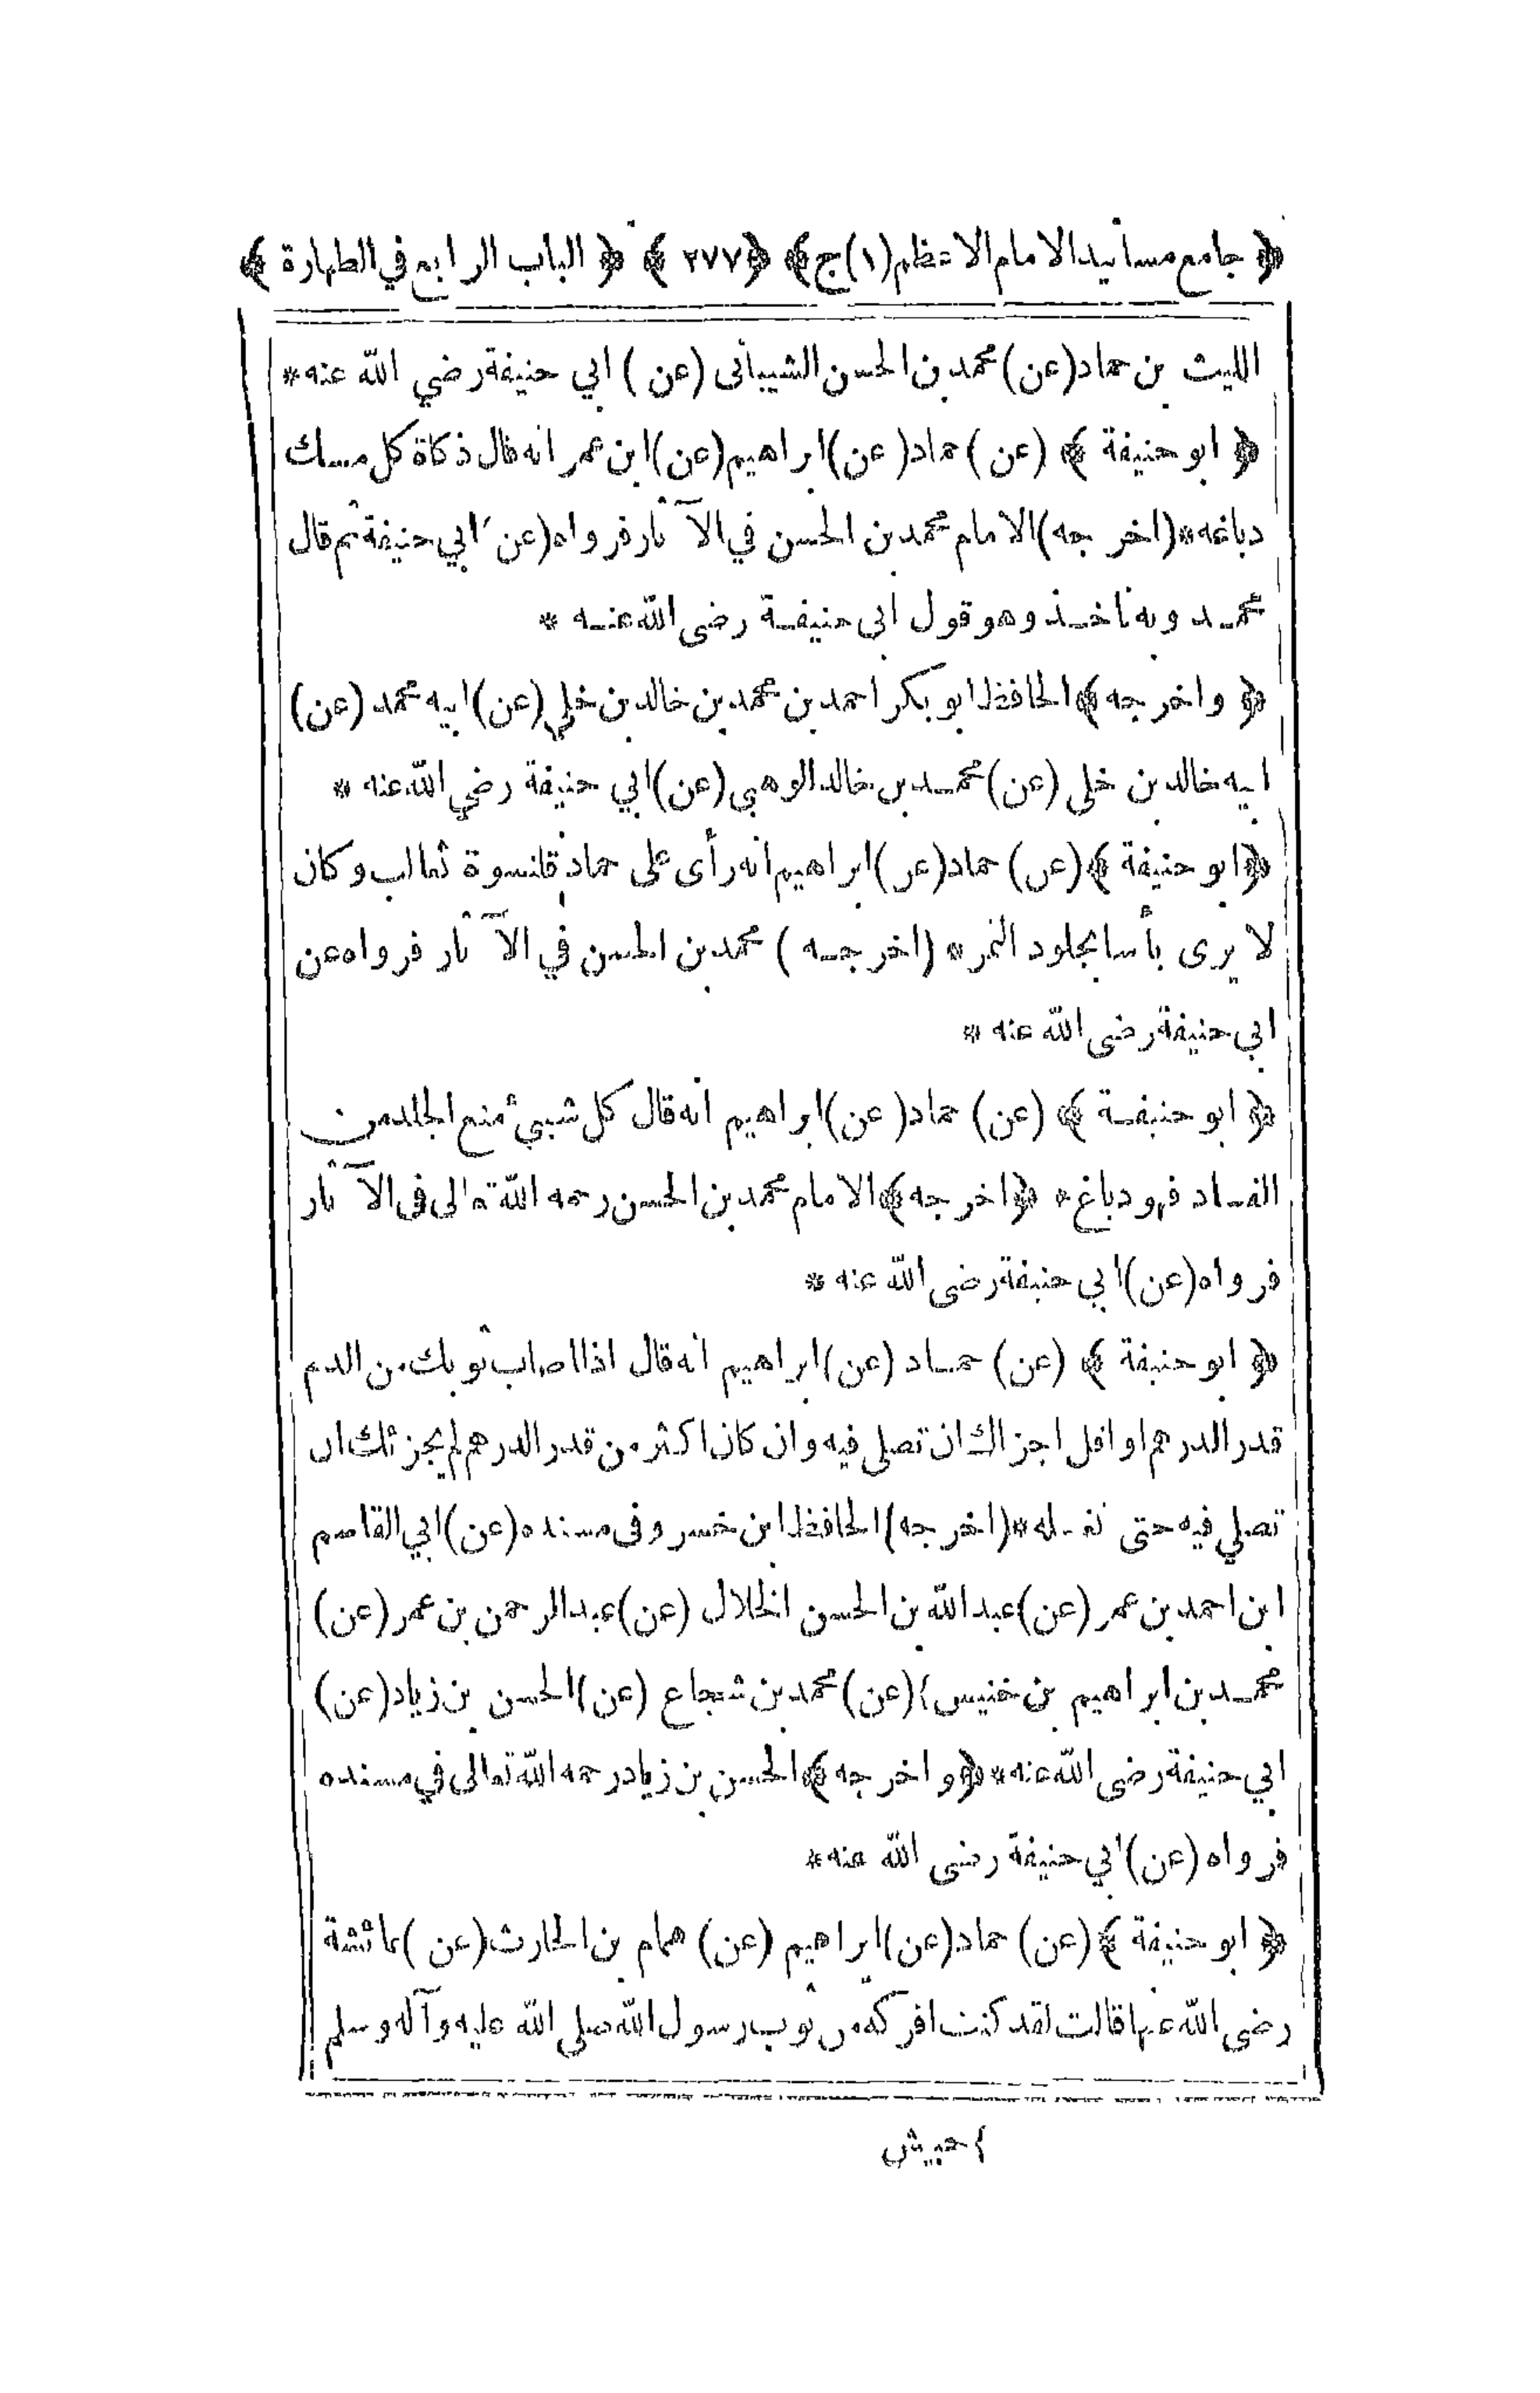 ﴿ جامع مسانيد الامام الاعظم (١) ج ﴾ ﴿ ٢٧٧ ﴾ ﴿ الباب الرابع في الطهارة ﴾
الليث بن حماد (عن) محمد بن الحسن الشيبانى (عن) ابي حنيفة رضي الله عنه *
﴿ ابو حنيفة ﴾ (عن) حماد (عن) ابراهيم (عن) ابن عمر انه قال ذكاة كل مسك
دباغه * (اخرجه) الامام محمد بن الحسن في الآثار فرواه (عن) ابي حنيفة ثم قال
محمد وبه نأخذ وهو قول ابى حنيفة رضى الله عنه *
﴿ واخرجه ﴾ الحافظ ابو بكر احمد بن محمد بن خالد بن خلي (عن) ابيه محمد (عن)
ابيه خالد بن خلى (عن) محمد بن خالد الوهبى (عن) ابي حنيفة رضي الله عنه *
﴿ ابو حنيفة ﴾ (عن) حماد (عن) ابراهيم انه رأى على حماد قلنسوة ثعالب وكان
لا يرى بأسا بجلود النمر * (اخرجه) محمد بن الحسن في الآثار فرواه عن
ابي حنيفة رضى الله عنه *
﴿ ابو حنيفة ﴾ (عن) حماد (عن) ابراهيم انه قال كل شيئ منع الجلد من
الفساد فهو دباغ * ﴿ اخرجه ﴾ الامام محمد بن الحسن رحمه الله تعالى فى الآثار
فرواه (عن) ابي حنيفة رضى الله عنه *
﴿ ابو حنيفة ﴾ (عن) حماد (عن) ابراهيم انه قال اذا اصاب ثوبك من الدم
قدر الدرهم او اقل اجزاك ان تصلى فيه وان كان اكثر من قدر الدرهم لم يجزئك ان
تصلي فيه حتى تغسله * (اخرجه) الحافظ ابن خسرو فى مسنده (عن) ابي القاسم
ابن احمد بن عمر (عن) عبد الله بن الحسن الخلال (عن) عبد الرحمن بن عمر (عن)
محمد بن ابراهيم بن خنيس ٢ (عن) محمد بن شجاع (عن) الحسن بن زياد (عن)
ابي حنيفة رضى الله عنه * ﴿ واخرجه ﴾ الحسن بن زياد رحمه الله تعالى في مسنده
فرواه (عن) ابي حنيفة رضى الله عنه *
﴿ ابو حنيفة ﴾ (عن) حماد (عن) ابراهيم (عن) همام بن الحارث (عن) عائشة
رضى الله عنها قالت لقد كنت افركه من ثوب رسول الله صلى الله عليه وآله وسلم
٢ حبيش